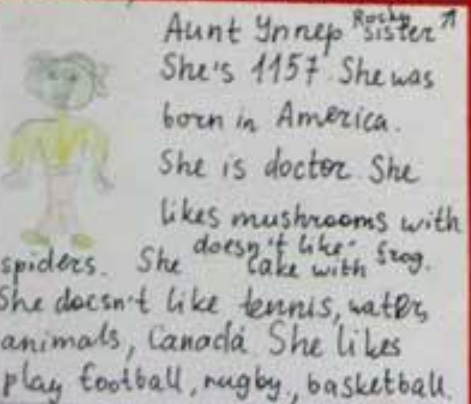 Aunt Ynnep Rosky sister
She's 1157. She was
born in America.
She is doctor. She
likes mushrooms with
spiders. She doesn't like cake with frog.
She doesn't like tennis, water,
animals, Canada. She likes
play football, rugby, basketball.